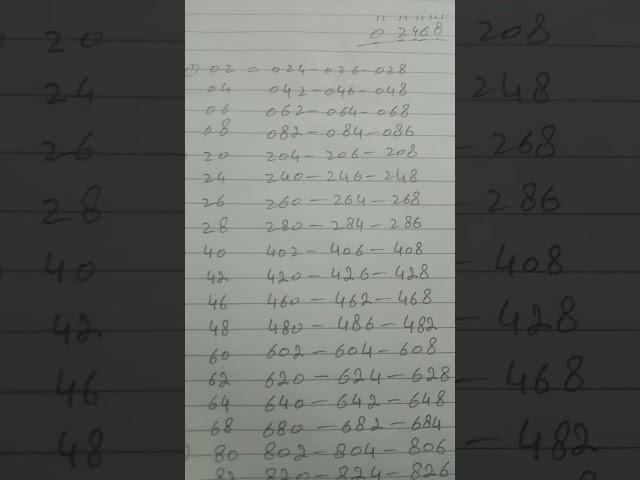 0 2468
02 = 024-026-028
04 042-046-048
06 062-064-068
08 082-084-086
20 204-206-208
24 240-246-248
26 260-264-268
28 280-284-286
40 402-406-408
42 420-426-428
46 460-462-468
48 480-486-482
60 602-604-608
62 620-624-628
64 640-642-648
68 680-682-684
80 802-804-806
82 820-824-826